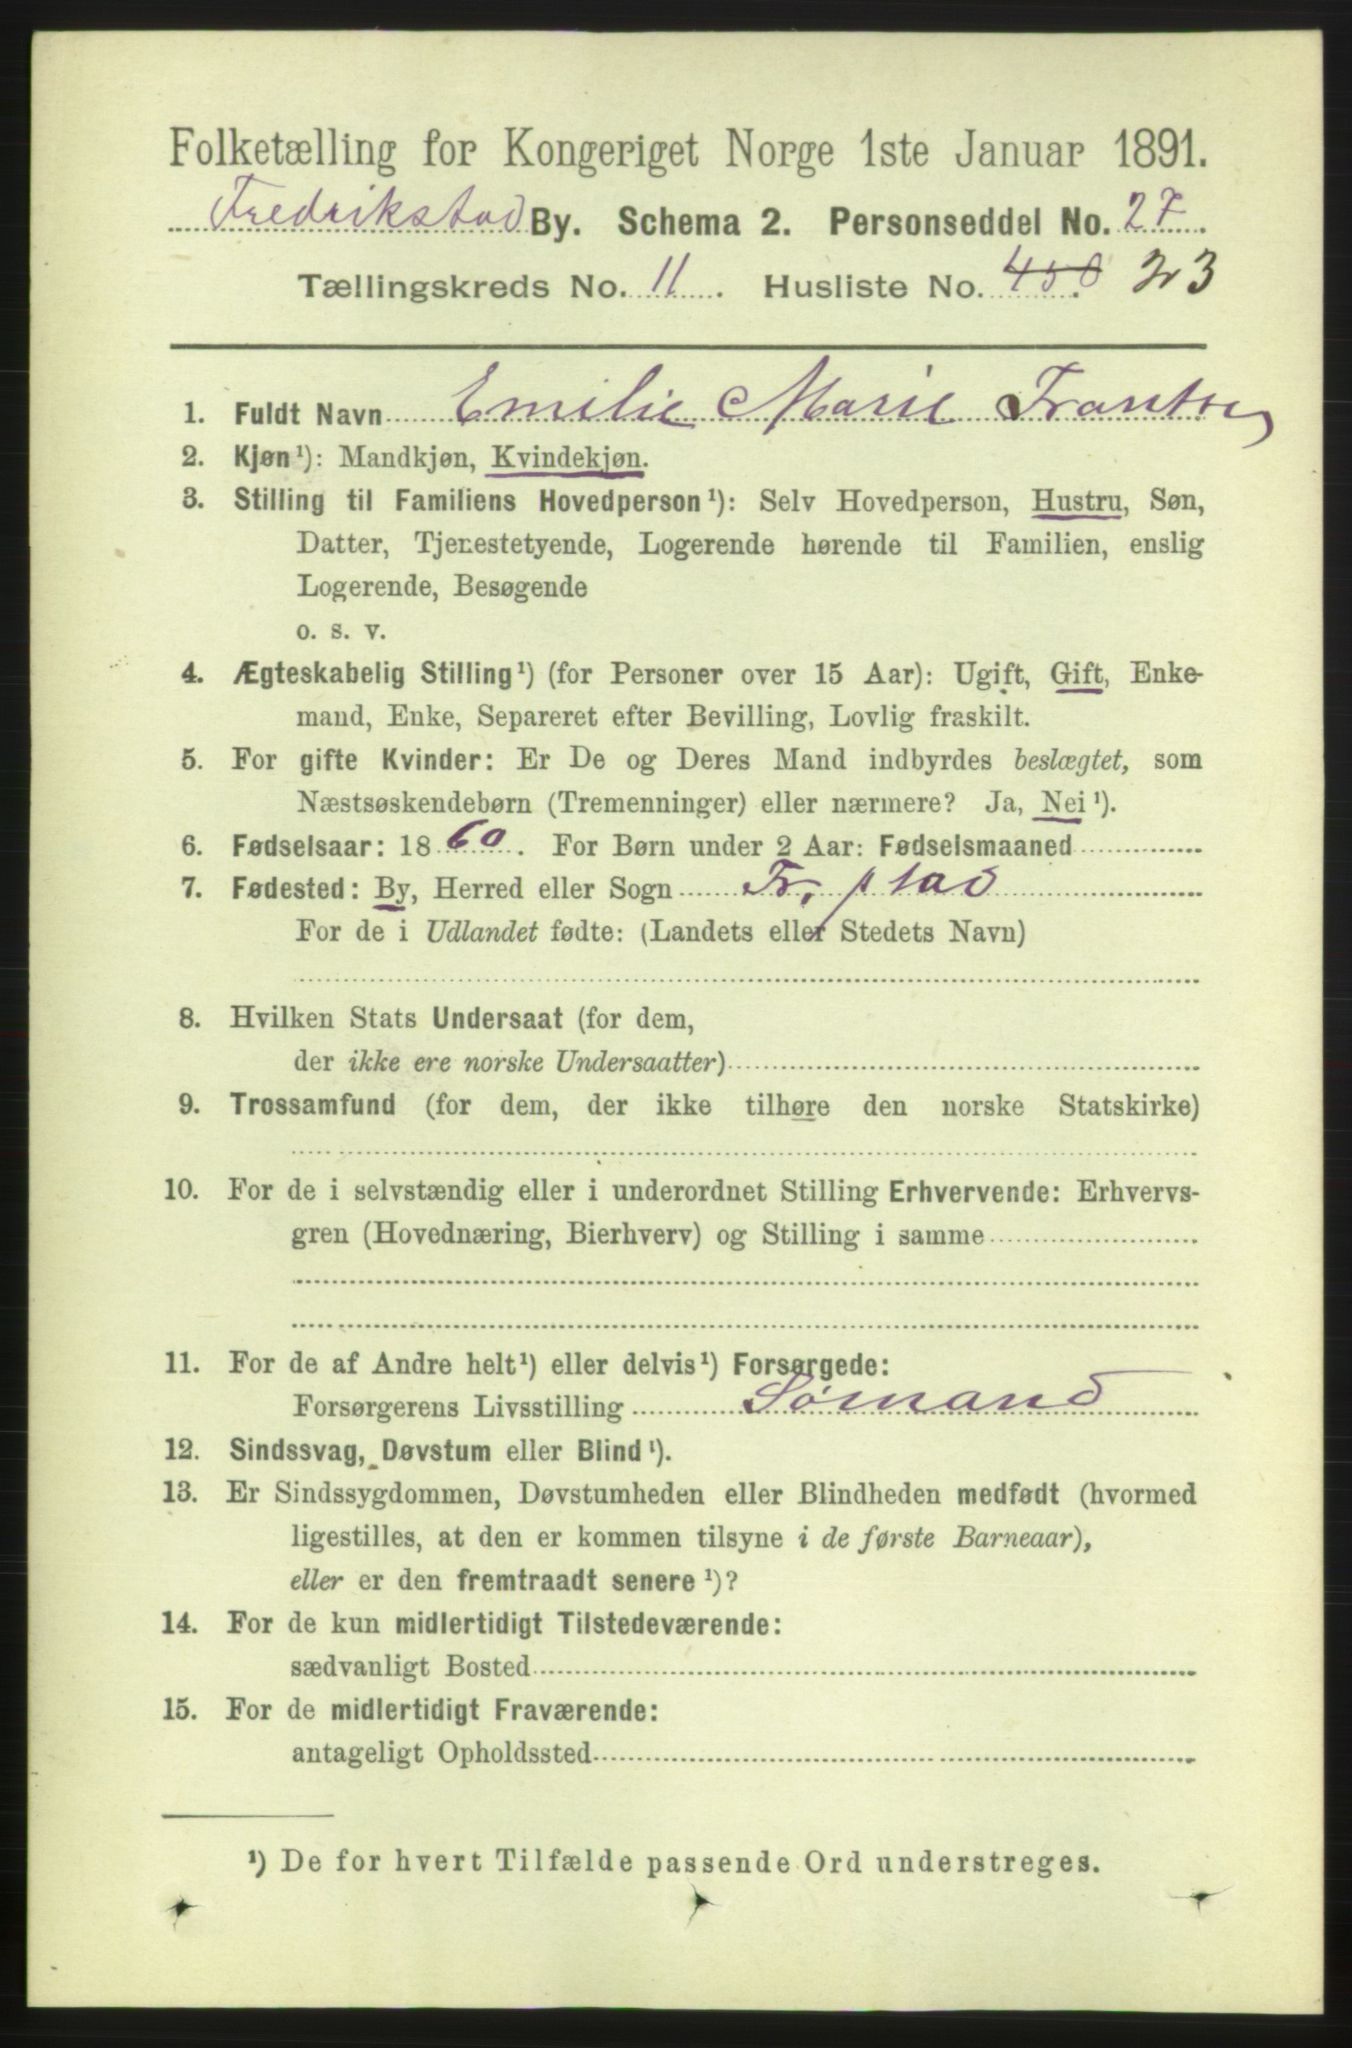 Folketælling for Kongeriget Norge 1ste Januar 1891.
Fredrikstad By. Schema 2. Personseddel No. 27.
Tællingskreds No. 11. Husliste No. 450. 23
1. Fuldt Navn Emilie Marie Frantsen
2. Kjøn¹): Mandkjøn, Kvindekjøn.
3. Stilling til Familiens Hovedperson¹): Selv Hovedperson, Hustru, Søn,
Datter, Tjenestetyende, Logerende hørende til Familien, enslig
Logerende, Besøgende
o. s. v.
4. Ægteskabelig Stilling¹) (for Personer over 15 Aar): Ugift, Gift, Enke-
mand, Enke, Separeret efter Bevilling, Lovlig fraskilt.
5. For gifte Kvinder: Er De og Deres Mand indbyrdes beslægtet, som
Næstsøskendebørn (Tremenninger) eller nærmere? Ja, Nei¹).
6. Fødselsaar: 1860. For Børn under 2 Aar: Fødselsmaaned
7. Fødested: By, Herred eller Sogn Fr. stad
For de i Udlandet fødte: (Landets eller Stedets Navn)
8. Hvilken Stats Undersaat (for dem,
der ikke ere norske Undersaatter)
9. Trossamfund (for dem, der ikke tilhøre den norske Statskirke)
10. For de i selvstændig eller i underordnet Stilling Erhvervende: Erhvervs-
gren (Hovednæring, Bierhverv) og Stilling i samme
11. For de af Andre helt¹) eller delvis¹) Forsørgede:
Forsørgerens Livsstilling Sømand
12. Sindssvag, Døvstum eller Blind¹).
13. Er Sindssygdommen, Døvstumheden eller Blindheden medfødt (hvormed
ligestilles, at den er kommen tilsyne i de første Barneaar),
eller er den fremtraadt senere¹)?
14. For de kun midlertidigt Tilstedeværende:
sædvanligt Bosted
15. For de midlertidigt Fraværende:
antageligt Opholdssted
¹) De for hvert Tilfælde passende Ord understreges.